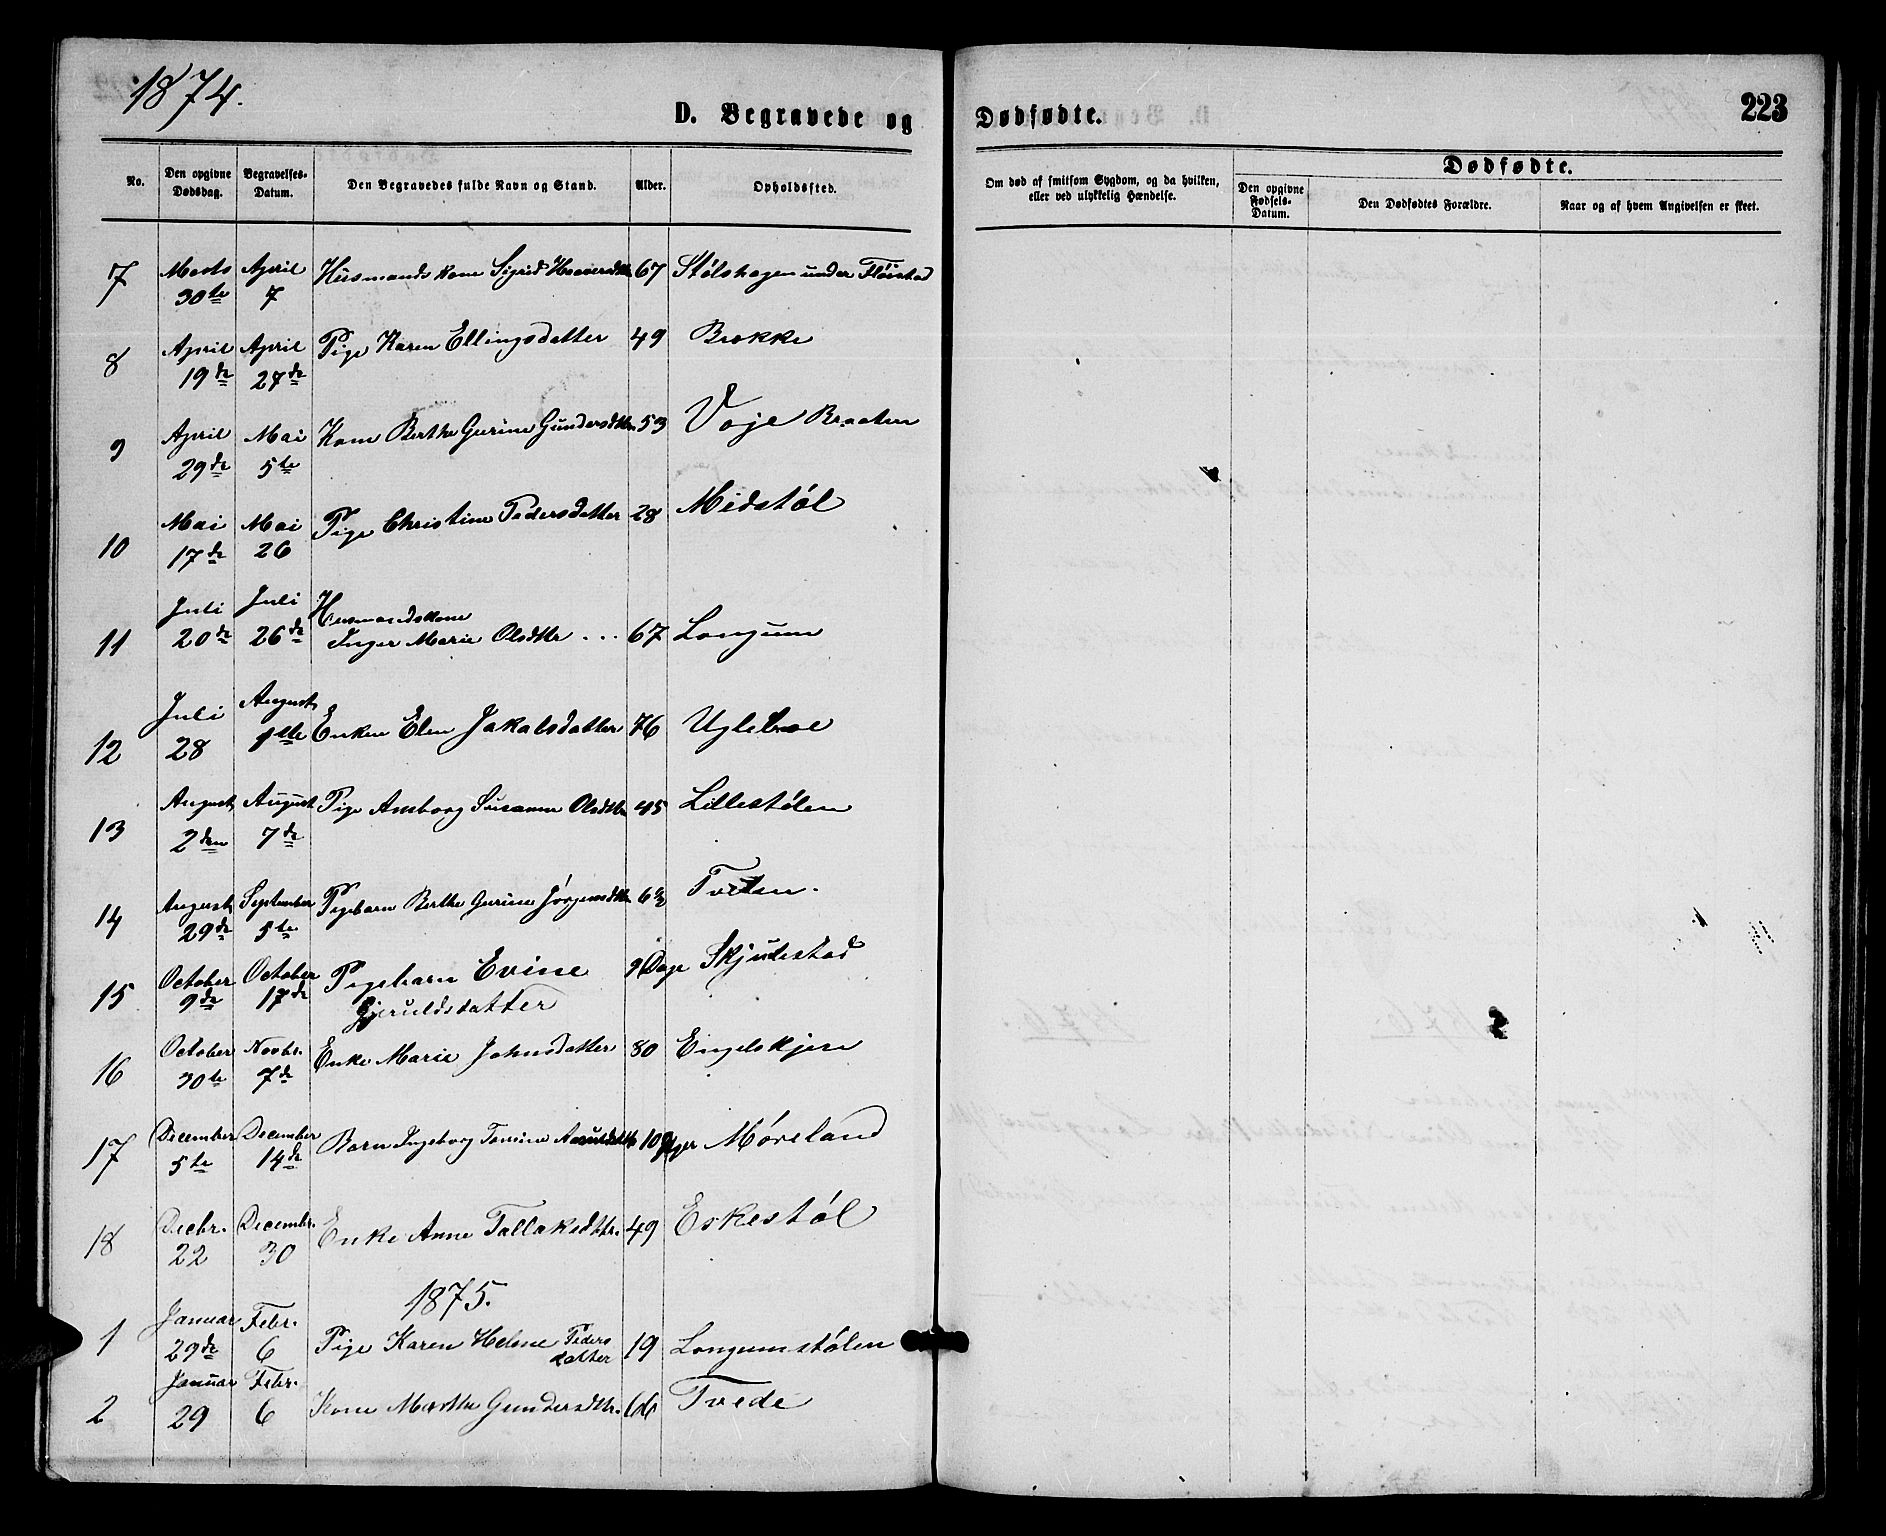 1874.
D. Begravede og Dødfødte.
223
No.
Den opgivne Dødsdag.
Begravelses-Datum.
Den Begravedes fulde Navn og Stand.
Alder.
Opholdssted.
Om død af smitsom Sygdom, og da hvilken, eller ved ulykkelig Hændelse.
Dødfødte.
Den opgivne Fødsels-Datum.
Den Dødfødtes Forældre.
Naar og af hvem Angivelsen er skeet.
7 Marts 30te April 7 Husmands kone Sigrid 67 Stølshagen under Fløistad
8 April 19de April 27de Pige Karen Ellingsdatter 49 Brekke
9 April 29de Mai 5te Kone Berthe Gurine Gundersdttr 53 Voje Braaten
10 Mai 17de Mai 26 Pige Christine Pedersdatter 28 Midstøl
11 Juli 20de Juli 26de Husmandskone
Inger Marie Olsdttr ... 67 Longum
12 Juli 28 August 1ste Enken Elen Jakobsdatter 76 Ugleboe
13 August 2den August 7de Pige Amborg Susanne Olsdttr 45 Lillestølen
14 August 29de September 5te Pigebarn Berthe Gurine Jørgensdttr 6 Tveten.
15 October 9de October 17de Pigebarn Evine 9 Dage Skjulestad
Gjeruldsdatter
16 October 30te Novbr. 7de Enke Marie Johnsdatter 80 Engelskjen
17 December 5te December 14de Barn Ingeborg Tomine 10 Møreland
18 Decbr. 22 Decembr. 30 Enke Anne Tallaksdttr. 49 Eskestøl
1875.
1 Januar 29de Febr. 6 Pige Karen Helene Peders
datter 19 Longumstølen
2 Januar 29 Febr. 6 Kone Marthe Gundersdttr. 66 Tvede